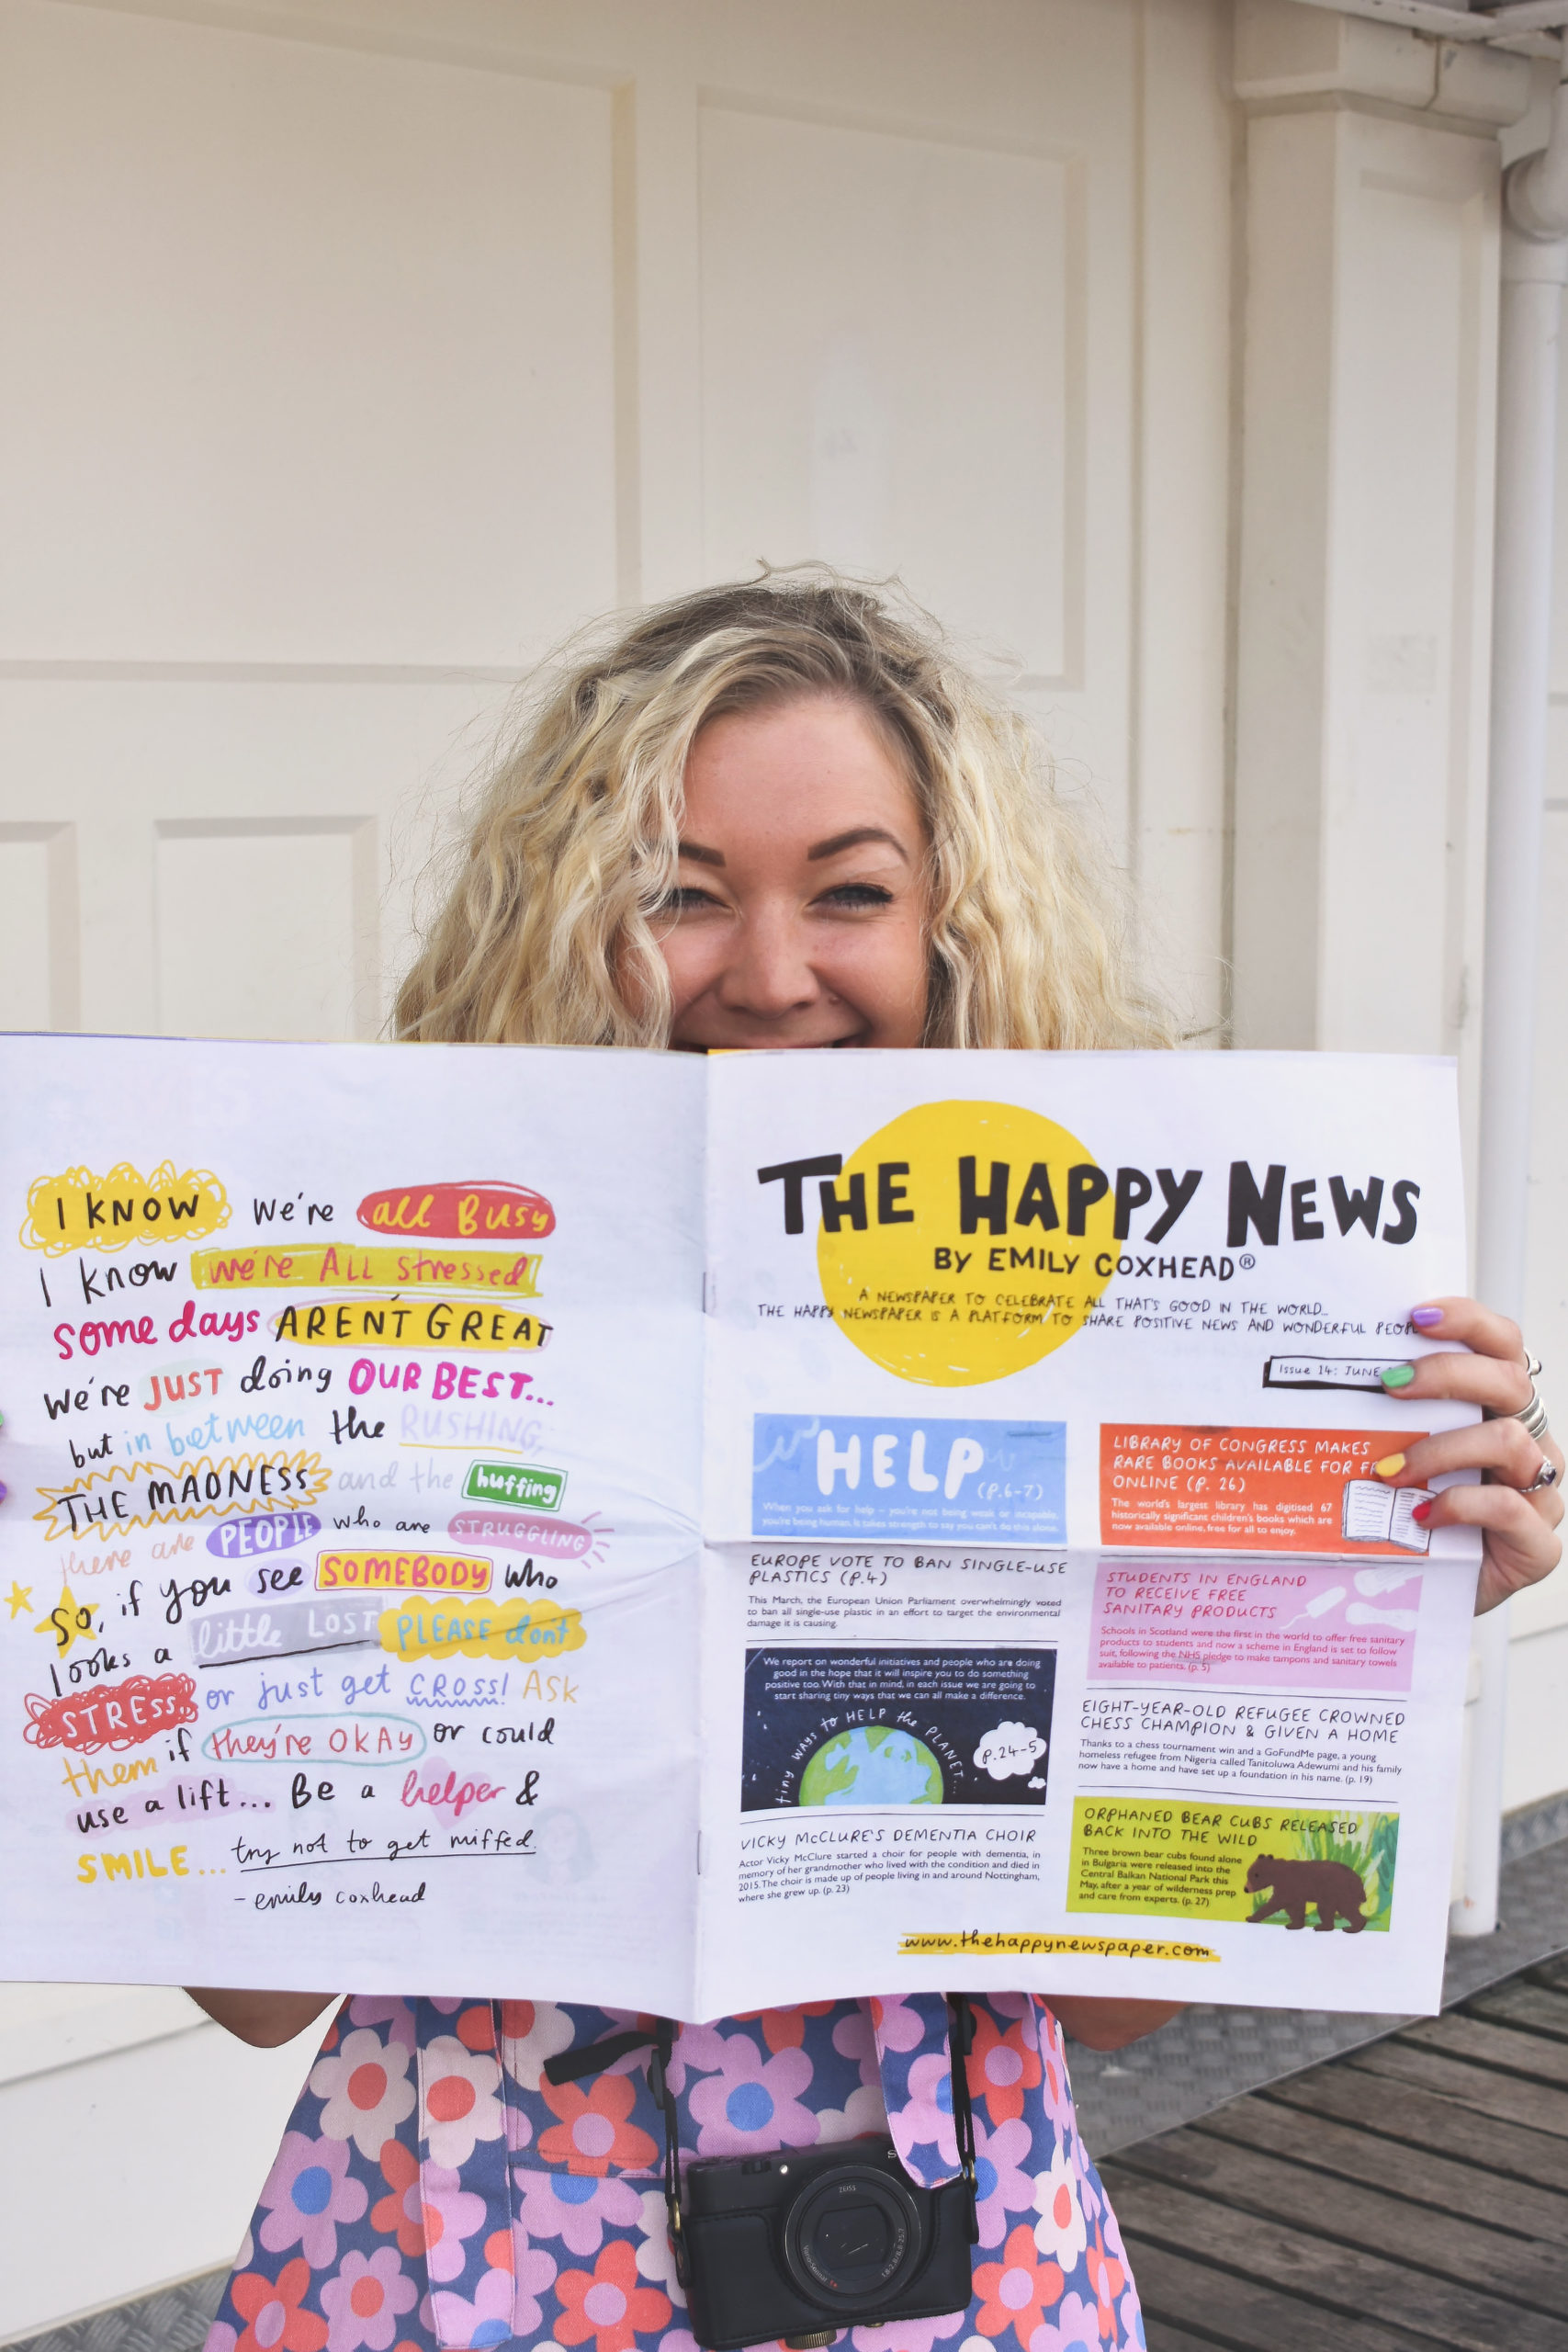 I KNOW we're all Busy
I know we're ALL stressed
some days AREN'T GREAT
we're JUST doing OUR BEST...
but in between the RUSHING,
THE MADNESS and the huffing
there are PEOPLE who are STRUGGLING
So, if you see SOMEBODY who
looks a little LOST PLEASE don't
STRESS, or just get CROSS! ASK
them if they're OKAY or could
use a lift... Be a helper &
SMILE... try not to get miffed.
- emily coxhead
THE HAPPY NEWS
BY EMILY COXHEAD®
A NEWSPAPER TO CELEBRATE ALL THAT'S GOOD IN THE WORLD...
THE HAPPY NEWSPAPER IS A PLATFORM TO SHARE POSITIVE NEWS AND WONDERFUL PEOPL
Issue 14: JUNE
HELP (P.6-7)
When you ask for help – you're not being weak or incapable,
you're being human. It takes strength to say you can't do this alone.
EUROPE VOTE TO BAN SINGLE-USE
PLASTICS (P.4)
This March, the European Union Parliament overwhelmingly voted
to ban all single-use plastic in an effort to target the environmental
damage it is causing.
We report on wonderful initiatives and people who are doing
good in the hope that it will inspire you to do something
positive too. With that in mind, in each issue we are going to
start sharing tiny ways that we can all make a difference.
tiny WAYS to HELP the PLANET...
P.24-5
VICKY McCLURE'S DEMENTIA CHOIR
Actor Vicky McClure started a choir for people with dementia, in
memory of her grandmother who lived with the condition and died in
2015. The choir is made up of people living in and around Nottingham,
where she grew up. (p. 23)
LIBRARY OF CONGRESS MAKES
RARE BOOKS AVAILABLE FOR FR
ONLINE (P. 26)
The world's largest library has digitised 67
historically significant children's books which are
now available online, free for all to enjoy.
STUDENTS IN ENGLAND
TO RECEIVE FREE
SANITARY PRODUCTS
Schools in Scotland were the first in the world to offer free sanitary
products to students and now a scheme in England is set to follow
suit, following the NHS pledge to make tampons and sanitary towels
available to patients. (p. 5)
EIGHT-YEAR-OLD REFUGEE CROWNED
CHESS CHAMPION & GIVEN A HOME
Thanks to a chess tournament win and a GoFundMe page, a young
homeless refugee from Nigeria called Tanitoluwa Adewumi and his family
now have a home and have set up a foundation in his name. (p. 19)
ORPHANED BEAR CUBS RELEASED
BACK INTO THE WILD
Three brown bear cubs found alone
in Bulgaria were released into the
Central Balkan National Park this
May, after a year of wilderness prep
and care from experts. (p. 27)
www.thehappynewspaper.com
S
ZEISS